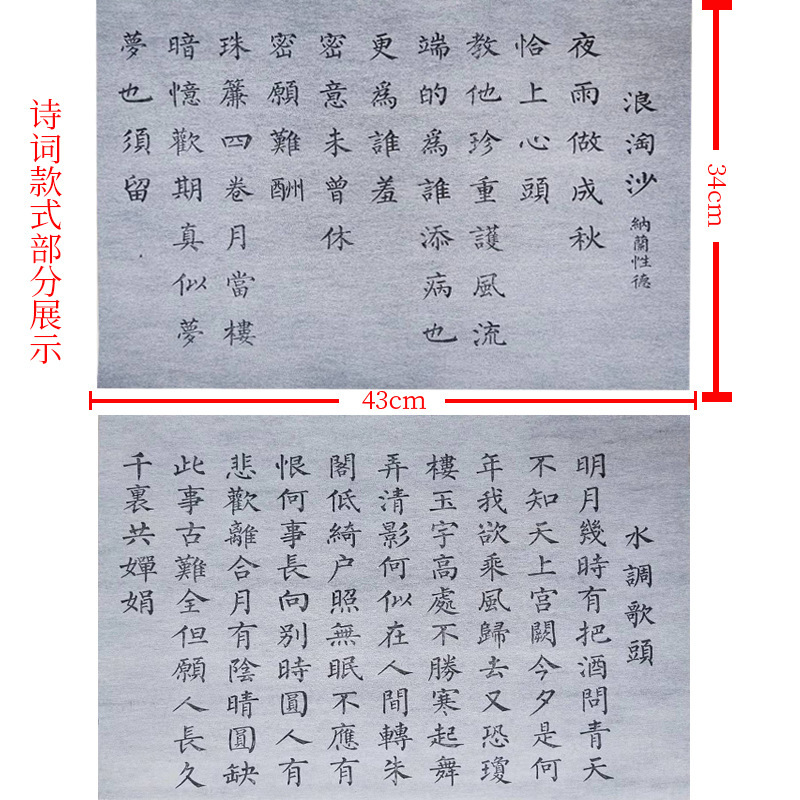 诗词款式部分展示
浪淘沙 納蘭性德
夜雨做成秋
恰上心頭
教他珍重護風流
端的爲誰添病也
更爲誰羞
密意未曾休
密願難酬
珠簾四卷月當樓
暗憶歡期真似夢
夢也須留
34cm
43cm
水調歌頭
明月幾時有把酒問青天
不知天上宮闕今夕是何
年我欲乘風歸去又恐瓊
樓玉宇高處不勝寒起舞
弄清影何似在人間轉朱
閣低綺户照無眠不應有
恨何事長向别時圓人有
悲歡離合月有陰晴圓缺
此事古難全但願人長久
千裏共嬋娟